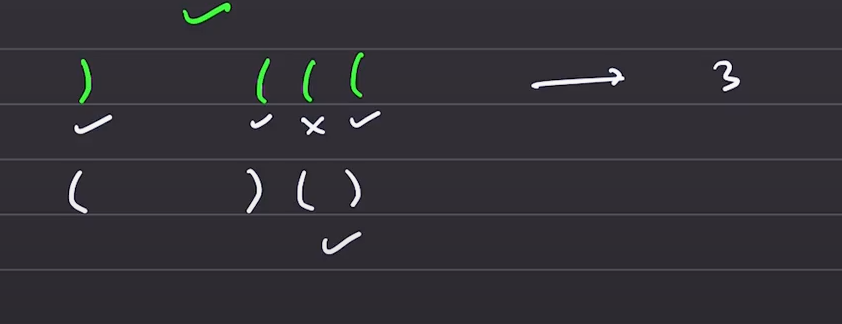 ✓
) ( ( ( → 3
✓ ✓ × ✓
( ) ( )
✓